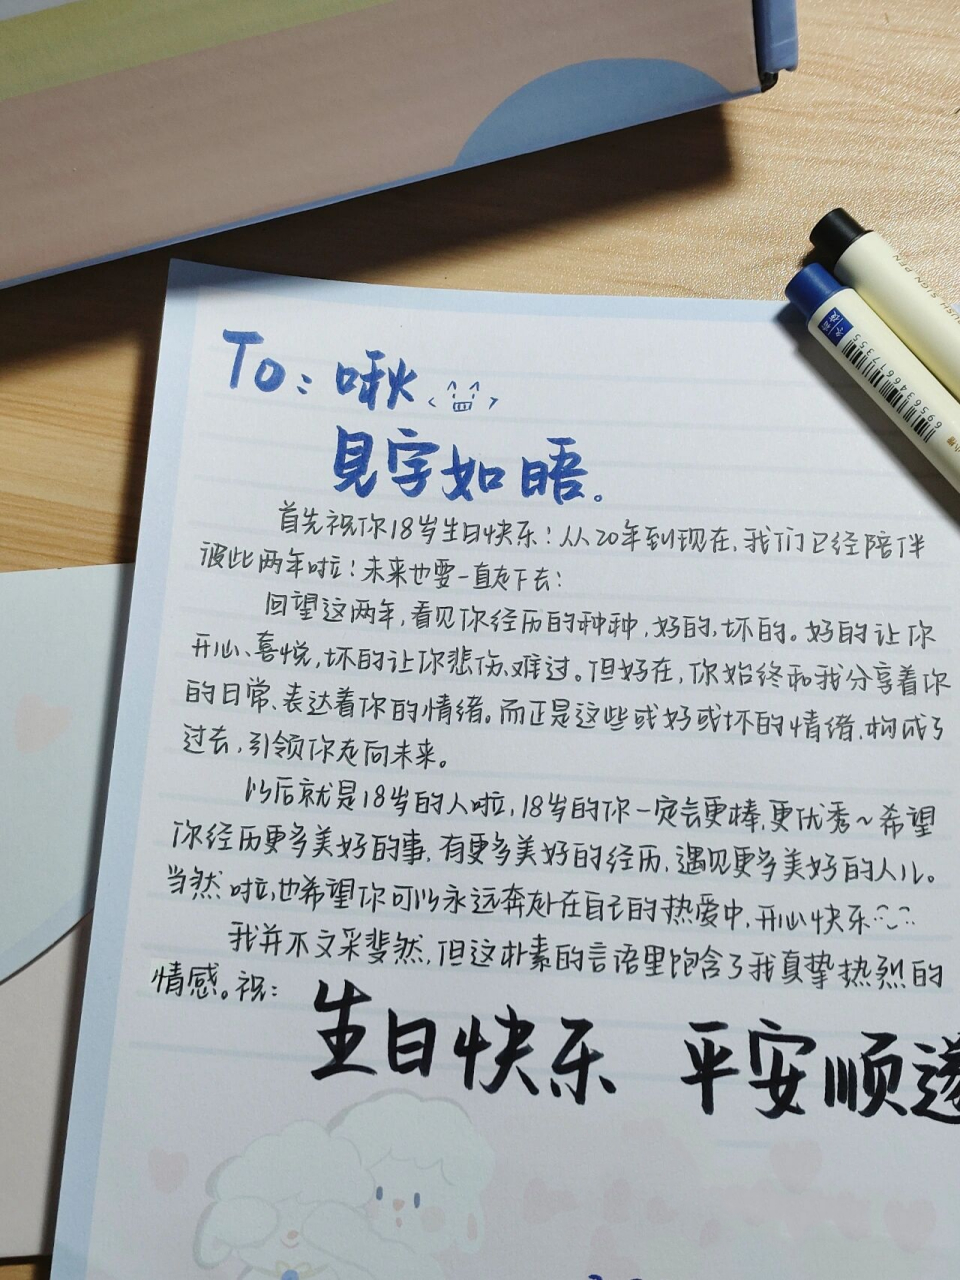 To：啾
見字如晤。
首先祝你18岁生日快乐！从20年到现在，我们已经陪伴
彼此两年啦！未来也要一直走下去！
回望这两年，看见你经历的种种，好的，坏的。好的让你
开心、喜悦，坏的让你悲伤、难过。但好在，你始终和我分享着你
的日常、表达着你的情绪。而正是这些或好或坏的情绪，构成了
过去，引领你走向未来。
以后就是18岁的人啦，18岁的你一定会更棒，更优秀～希望
你经历更多美好的事，有更多美好的经历，遇见更多美好的人儿。
当然啦，也希望你可以永远奔赴在自己的热爱中，开心快乐
我并不文采斐然，但这朴素的言语里饱含了我真挚热烈的
情感。祝：
生日快乐 平安顺遂
BRUSH SIGN PEN
6956346617355